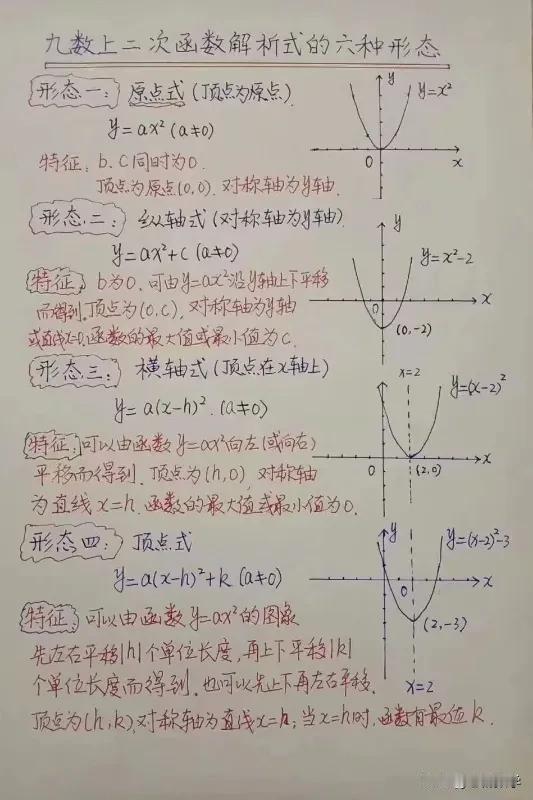 九数上二次函数解析式的六种形态
形态一: 原点式 (顶点为原点).
y=ax² (a≠0)
特征: b、c同时为0.
顶点为原点(0,0). 对称轴为y轴.
y
y=x²
0
x
形态二: 纵轴式 (对称轴为y轴).
y=ax²+c (a≠0)
特征: b为0. 可由y=ax²沿y轴上下平移
而得到. 顶点为(0,c), 对称轴为y轴
或直线x=0, 函数的最大值或最小值为c.
y
y=x²-2
0
x
(0,-2)
形态三: 横轴式 (顶点在x轴上)
y=a(x-h)². (a≠0)
特征: 可以由函数y=ax²向左(或向右)
平移而得到. 顶点为(h,0), 对称轴
为直线x=h. 函数的最大值或最小值为0.
x=2
y
y=(x-2)²
0
(2,0)
x
形态四: 顶点式
y=a(x-h)²+k (a≠0)
特征: 可以由函数y=ax²的图象
先左右平移|h|个单位长度, 再上下平移|k|
个单位长度而得到. 也可以先上下再左右平移.
顶点为(h,k), 对称轴为直线x=h; 当x=h时, 函数有最值k.
y
y=(x-2)²-3
0
x
(2,-3)
x=2